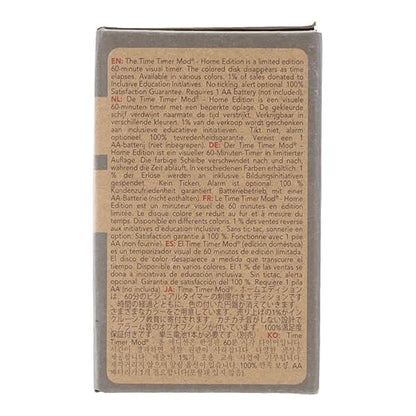 EN: The Time Timer Mod® - Home Edition is a limited edition
60-minute visual timer. The colored disk disappears as time
elapses. Available in various colors. 1% of sales donated to
Inclusive Education initiatives. No ticking, alert optional! 100%
Satisfaction Guarantee. Requires 1 AA battery (not included).
NL: De Time Timer Mod® - Home Edition is een visuele
60-minuten timer met een beperkte oplage. De gekleurde
schijf verdwijnt naarmate de tijd verstrijkt. Verkrijgbaar in
verschillende kleuren. 1% van de verkoop wordt geschonken
aan inclusieve educatieve initiatieven. Tikt niet, alarm
optioneel. 100% tevredenheidsgarantie. Vereist een 1
AA-battery (niet inbegrepen). DE: Der Time Timer Mod® -
Home Edition ist ein visueller 60-Minuten-Timer in limitierter
Auflage. Die farbige Scheibe verschwindet nach und nach,
während die Zeit abläuft. In verschiedenen Farben erhältlich. 1
% der Erlöse werden an inklusive Bildungsinitiativen
gespendet. Kein Ticken, Alarm optional. 100 %
Kundenzufriedenheit garantiert. Batteriebetrieb mit einer
AA-Batterie (nicht enthalten). FR: Le Time Timer Mod® - Home
Edition est un minuteur visuel de 60 minutes en édition
limitée. Le disque coloré se réduit au fur et à mesure du
temps. Disponible en différents coloris. 1 % des ventes seront
reversés à des initiatives éducatives inclusives. Sans tic-tac, sonnerie en
option. Satisfaction garantie à 100 %. Fonctionne avec 1 pile
AA (non fournie). ES: El Time Timer Mod® (edición doméstica)
es un temporizador visual de 60 minutos de edición limitada. El
disco de color desaparece a medida que transcurre el
tiempo. Disponible en varios colores. El 1 % de las ventas se
dona a iniciativas de educación inclusiva. Sin tictac, alerta
opcional. Garantía de satisfacción del 100 %. Requiere 1 pila
AA (no incluida). JA: Time Timer Mod® - ホームエディション
は、60分のビジュアルタイマーの制限付きエディションです
時間の経過とともに、色の付いた円盤が消えていきます
さまざまなカラーをご用意しています。売り上げの1%がイン
クルーシブ教育に寄付されます。カチカチ音がしない設計で
アラーム音のオプションが付いています。100%満足度
保証付き。単三電池1本が必要(別売)。 KO: Time Timer
Mod® - 홈 에디션은 한정판 60분 시각 타이머입니다.